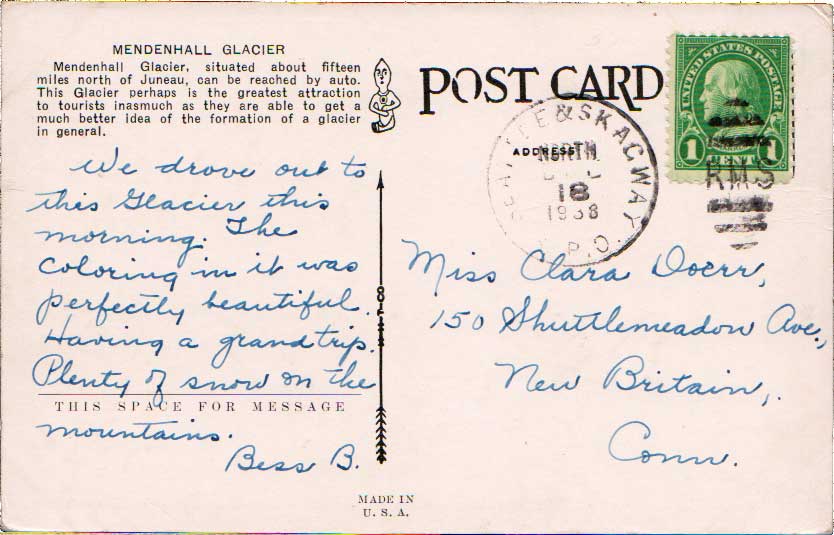 MENDENHALL GLACIER
Mendenhall Glacier, situated about fifteen
miles north of Juneau, can be reached by auto.
This Glacier perhaps is the greatest attraction
to tourists inasmuch as they are able to get a
much better idea of the formation of a glacier
in general.
POST CARD
ADDRESS
UNITED STATES POSTAGE
1 CENT 1
& SKAGWAY
NORTH
18
R.P.O.
RMS
We drove out to
this Glacier this
morning. The
coloring in it was
perfectly beautiful.
Having a grand trip.
Plenty of snow on the
THIS SPACE FOR MESSAGE
mountains.
Bess B.
Miss Clara Doerr,
150 Shuttlemeadow Ave.,
New Britain,
Conn.
MADE IN
U. S. A.